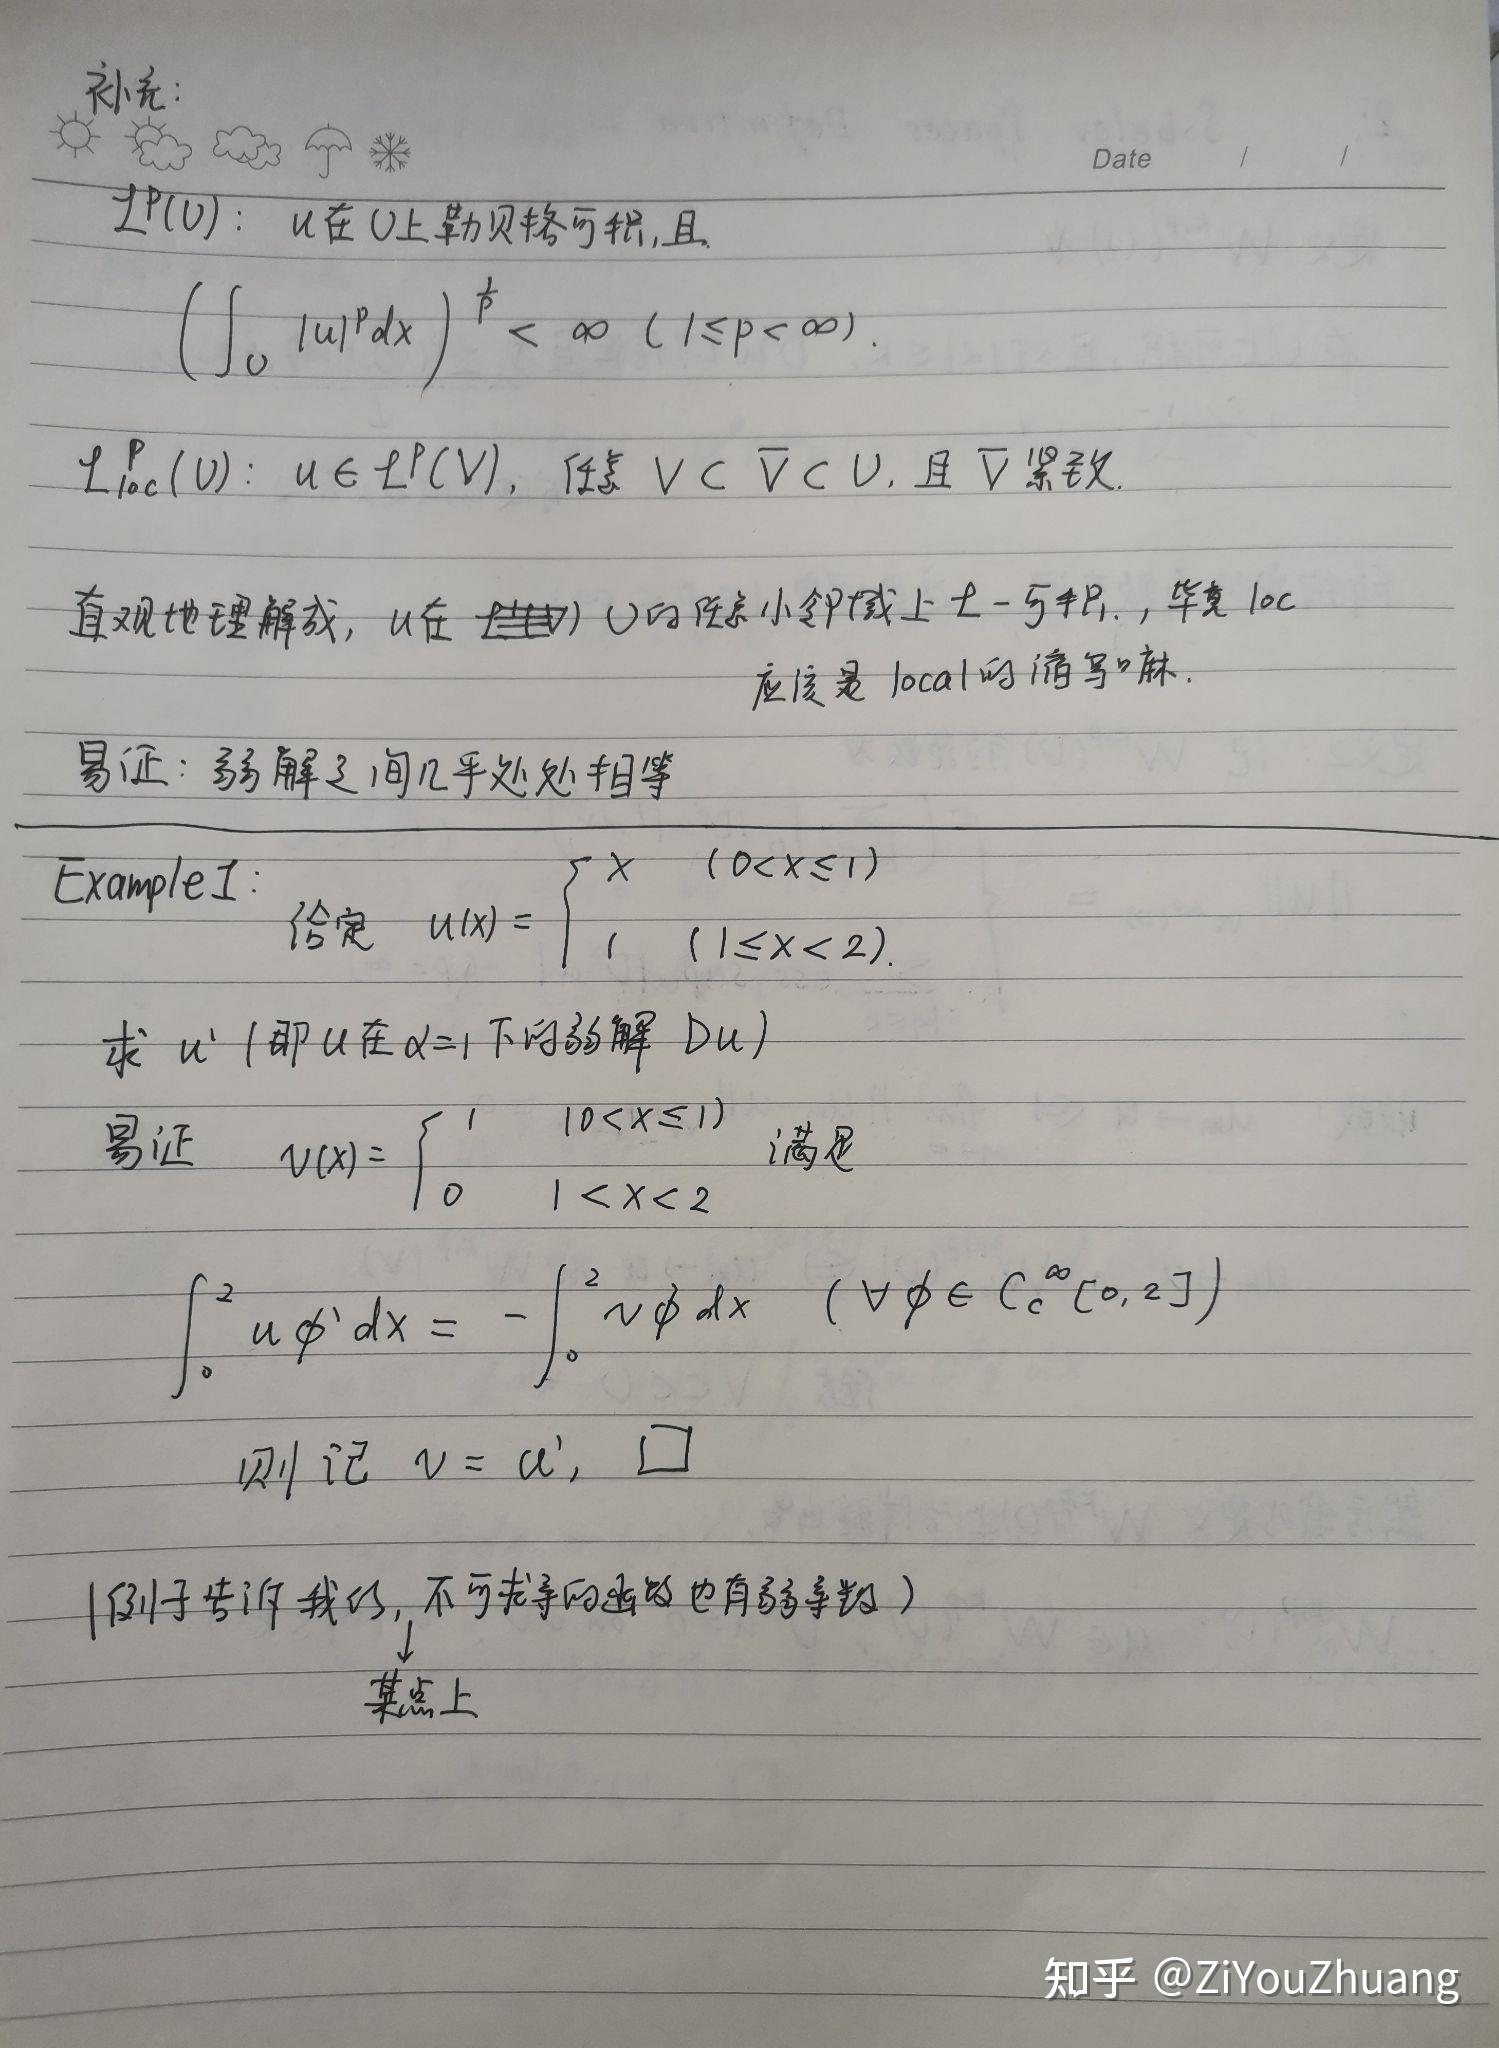 补充:
Date / /
L^p(U): u在U上勒贝格可积,且
(∫_U |u|^p dx)^{1/p} < ∞ (1≤p<∞).
L^p_loc(U): u∈L^p(V), 任意 V⊂V̄⊂U, 且 V̄ 紧致.
直观地理解成, u在 U的任意小邻域上 L-可积., 毕竟 loc
应该是 local的缩写嘛.
易证: 弱解之间几乎处处相等
Example 1:
x (0<x≤1)
给定 u(x)={
1 (1≤x<2).
求 u' (即u在α=1下的弱解 Du)
1 (0<x≤1)
易证 v(x)={ 满足
0 1<x<2
∫_0^2 uϕ'dx = -∫_0^2 vϕdx (∀ϕ∈C_c^∞[0,2])
则记 v = u', □
(例子告诉我们, 不可求导的函数也有弱导数)
↓
某点上
知乎 @ZiYouZhuang